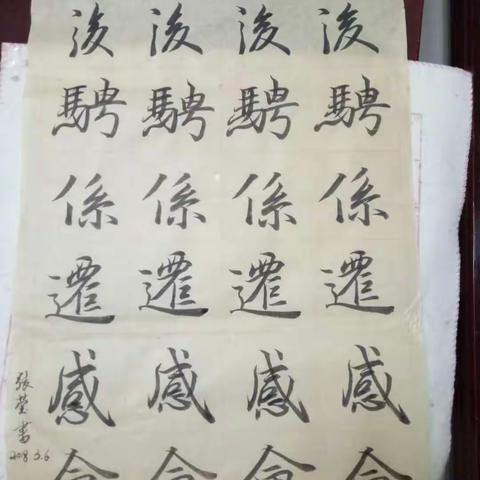 後 後 後 後
騁 騁 騁 騁
係 係 係 係
遷 遷 遷 遷
感 感 感 感
張莹書
2018 3.6